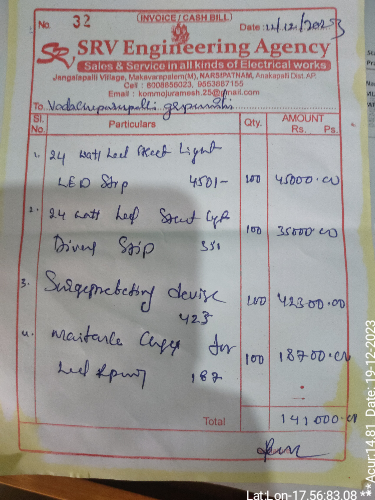 INVOICE / CASH BILL
No. 32 Date: 11/12/2023
SRV Engineering Agency
Sales & Service in all kinds of Electrical works
Jangalapalli Village, Makavarapalem(M), NARSIPATNAM, Anakapalli Dist. AP.
Cell : 8008655023, 9553887155
Email : kommojuramesh.25@gmail.com
To
Sl. No. Particulars Qty. AMOUNT Rs. Ps.
1. 24 watt Led Street Light
LED Strip 450/- 100 45000.00
2. 24 watt Led Street Light
Driver Strip 350 100 35000.00
3. Surgeprotecting device
423 100 42300.00
4. for
Led 187 100 18700.00
Total 141000.00
Lat:Lon-17.56:83.08 ***
Acur:14.81 Date: 19-12-2023